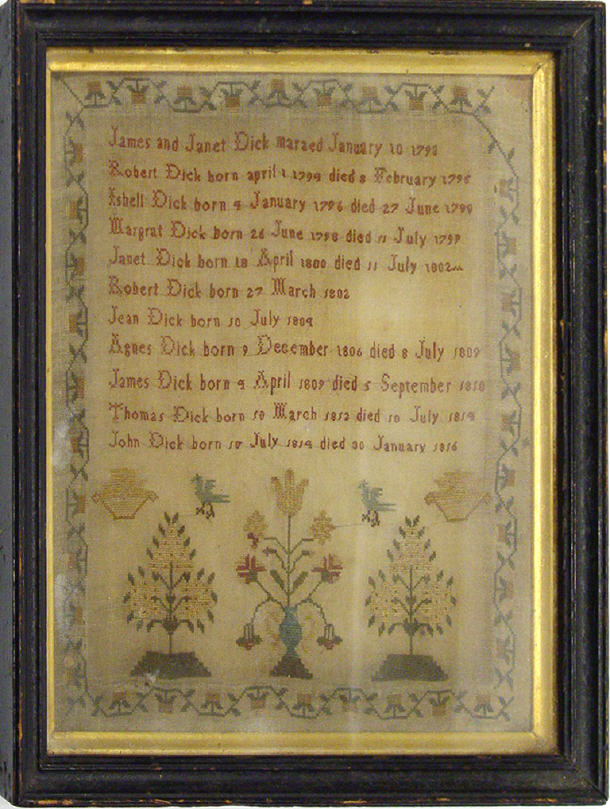 James and Janet Dick maraed January 10 1793
Robert Dick born april 1 1794 died 8 February 1795
Isbell Dick born 4 January 1796 died 27 June 1799
Margrat Dick born 26 June 1798 died 11 July 1799
Janet Dick born 18 April 1800 died 11 July 1802
Robert Dick born 27 March 1802
Jean Dick born 10 July 1804
Agnes Dick born 9 December 1806 died 8 July 1809
James Dick born 4 April 1809 died 5 September 1810
Thomas Dick born 10 March 1812 died 10 July 1814
John Dick born July 1814 died 30 January 1816